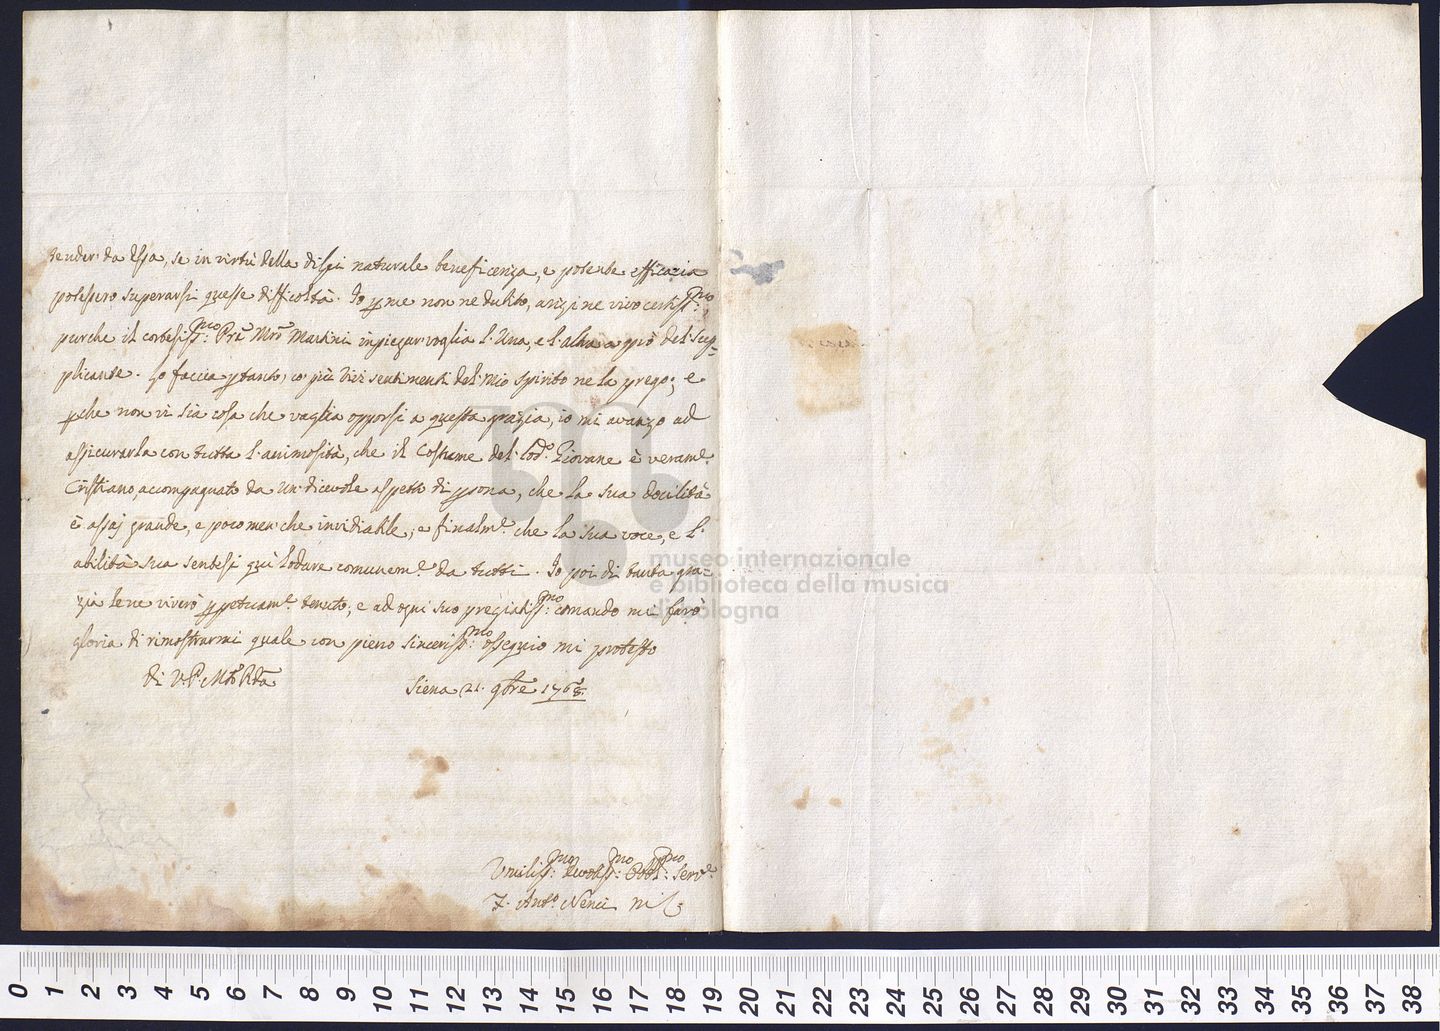 tender da Essa, se in virtù della di Lei naturale beneficenza, e potente efficacia
potessero superarsi queste difficoltà. Io p me non ne dubito, anzi ne vivo certiss:mo
purche il cortesiss:mo Pre Mro Martini inpiegar voglia l'Una, e l'altra a prò del sup=
plicante. Lo faccia ptanto, co più vivi sentimenti del mio spirito ne la prego; e
pche non vi sia cosa che vaglia opporsi a questa grazia, io mi avanzo ad
assicurarla con tutta l'animosità, che il Costume del lodo Giovane è verame
Cristiano, accompagnato da Un dicevole aspetto di psona, che la sua docilità
è assaj grande, e poco men che invidiabile, e finalme che la sua voce, e l'
abilità sua sentesi quì lodare comuneme da tutti. Io poi di tanta gra=
zia le ne viverò ppetuame tenuto, e ad ogni suo pregiatiss:mo comando mi farò
gloria di rimostrarmi quale con pieno sinceriss:mo ossequio mi protesto
di V. P. Mto Rda
Siena 21. 9bre 1768.
Umiliss:mo Devotiss:mo Obbl:mo Serve
F. Anto Nenci
museo internazionale
e biblioteca della musica
di bologna
0 1 2 3 4 5 6 7 8 9 10 11 12 13 14 15 16 17 18 19 20 21 22 23 24 25 26 27 28 29 30 31 32 33 34 35 36 37 38